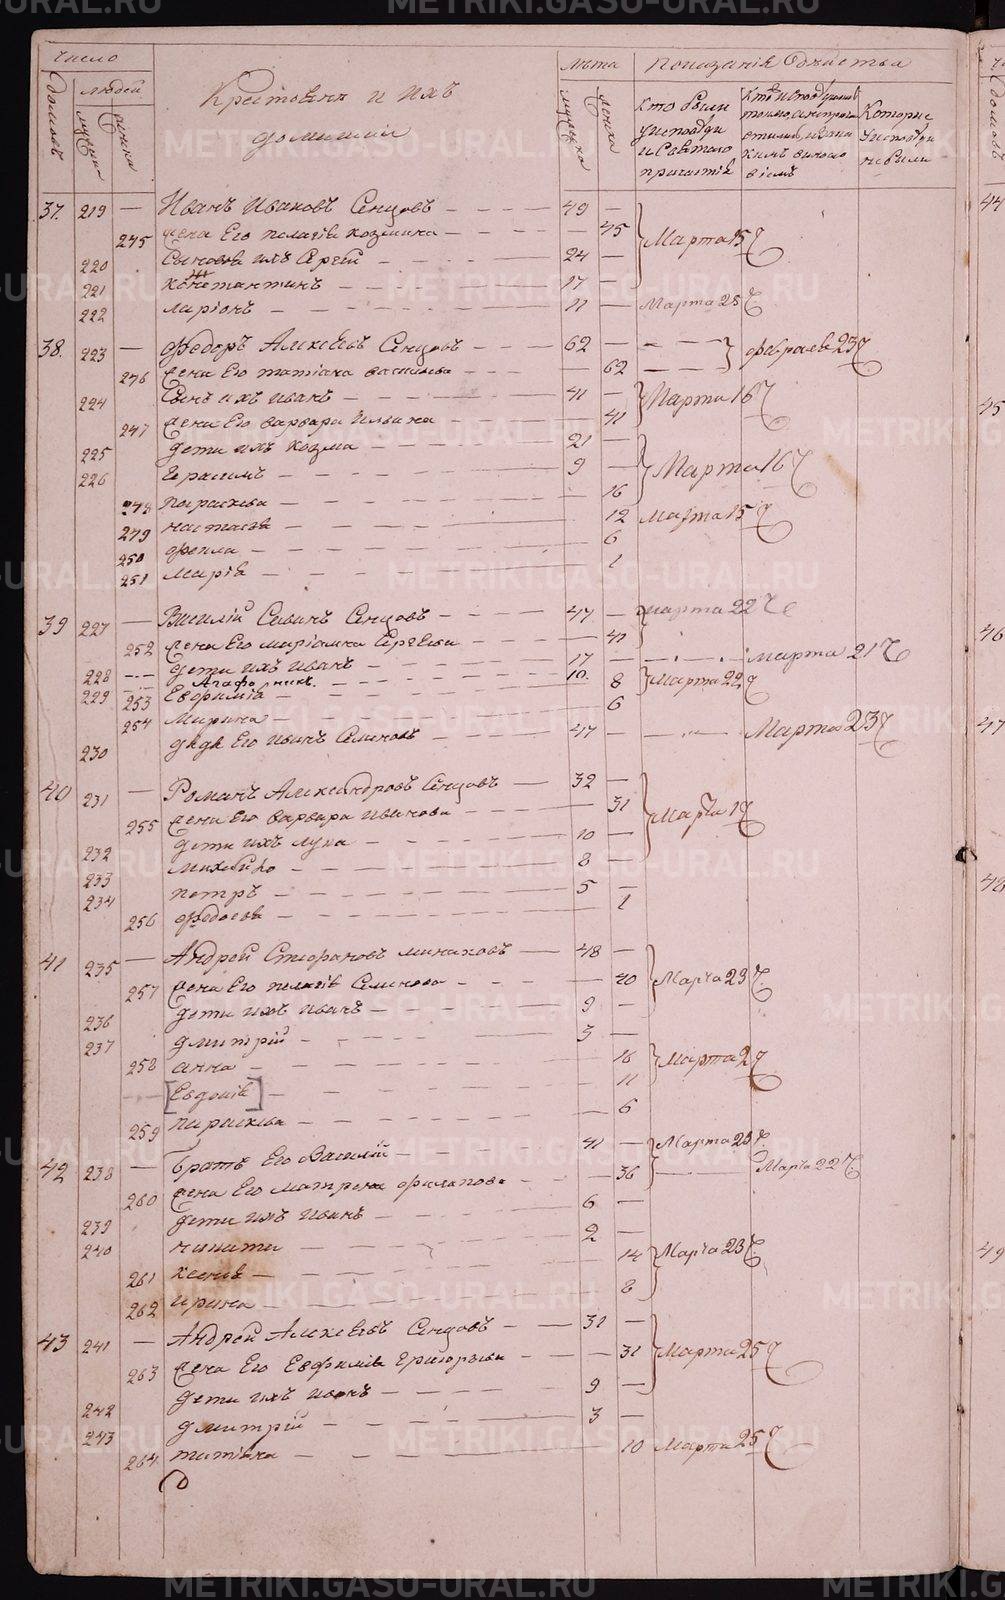 METRIKI.GASO-URAL.RU
Число
Лѣта
Показанiе Обнiства
людей
домовъ
мужска
женска
Крестьяня и ихъ
домашнiи
мужска
женска
Кто были
у исповѣди
и святаго
причастiя
Которые
у исповѣди
не были
37. 219 — Иванъ Ивановъ Сенцовъ 49 —
245 жена Его пелагiя козмина — 45 Марта 15 Ч
220 Сыновья ихъ Сергѣй 24 —
221 константинъ 17 —
222 ларiонъ 11 — Марта 25 Ч
38. 223 — Федоръ Алексѣевъ Сенцовъ 62 — февраля 23 Ч
276 жена Его татiана васильева — 62
224 Сынъ ихъ иванъ 41 — Марта 16 Ч
247 жена Его варвара Ильина 41
225 дети ихъ козма 21 — Марта 16 Ч
226 Герасимъ 9 —
248 параскева 16
249 настасья 12 Марта 15 Ч
250 фекла 6
251 марiя 1
39 227 — Василiй Савинъ Сенцовъ 47 — марта 22 Ч
252 жена Его марiамна Сергѣева — 41 марта 21 Ч
228 дети ихъ иванъ 17 — Марта 22 Ч
229 Агафоникъ. 10.
253 Евфимiя 8
254 Марина 6
230 дядя Его иванъ Семеновъ 47 — Марта 23 Ч
40 231 — Романъ Александровъ Сенцовъ 32 —
255 жена Его варвара иванова — 31 Марта 19 Ч
232 дети ихъ лука 10 —
233 михайло 8
234 петръ 5 —
256 федосья 1
41 235 — Андрей Стефановъ минаковъ 48 —
257 жена Его пелагiя Семенова — 40 Марта 23 Ч
236 дети ихъ иванъ 9 —
237 дмитрiй 3 —
258 анна 16 Марта 2 Ч
[Евдокiя] 11
259 параскева 6
42 238 — братъ Его Василiй 41 — Марта 23 Ч
260 жена Его матрена филапова — 36 Марта 22 Ч
239 дети ихъ иванъ 6 —
240 никита 2 —
261 ксенiя 14 Марта 23 Ч
262 ирина 8
43 241 — Андрей Алексѣевъ Сенцовъ 31 —
263 жена Его Евфимiя григорьева — 31 Марта 25 Ч
242 дети ихъ иванъ 9 —
243 дмитрiй 3 —
264 татiана 10 Марта 25 Ч
44
45
46
47
48
49
METRIKI.GASO-URAL.RU